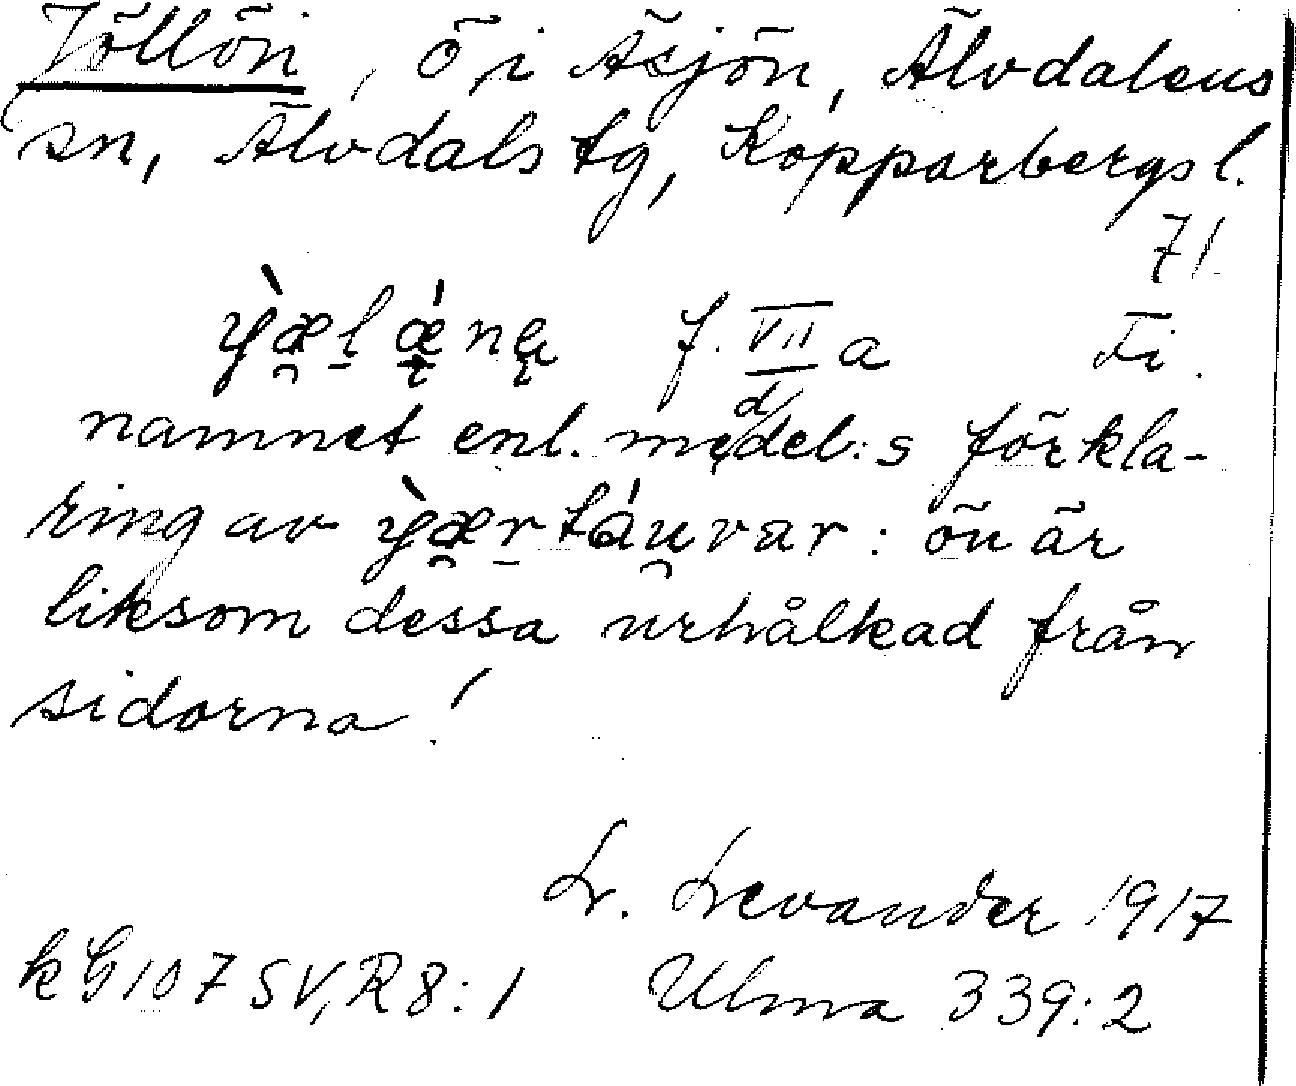 Jöllön, ö i Åsjön, Älvdalens
sn, Älvdals tg, Kopparbergs l.
71
f. VII a Fi.
namnet enl. meddel:s förkla-
ring av : ön är
liksom dessa urhålkad från
sidorna!
L. Levander 1917
k G 107 SV, R 8:1 Ulma 339:2